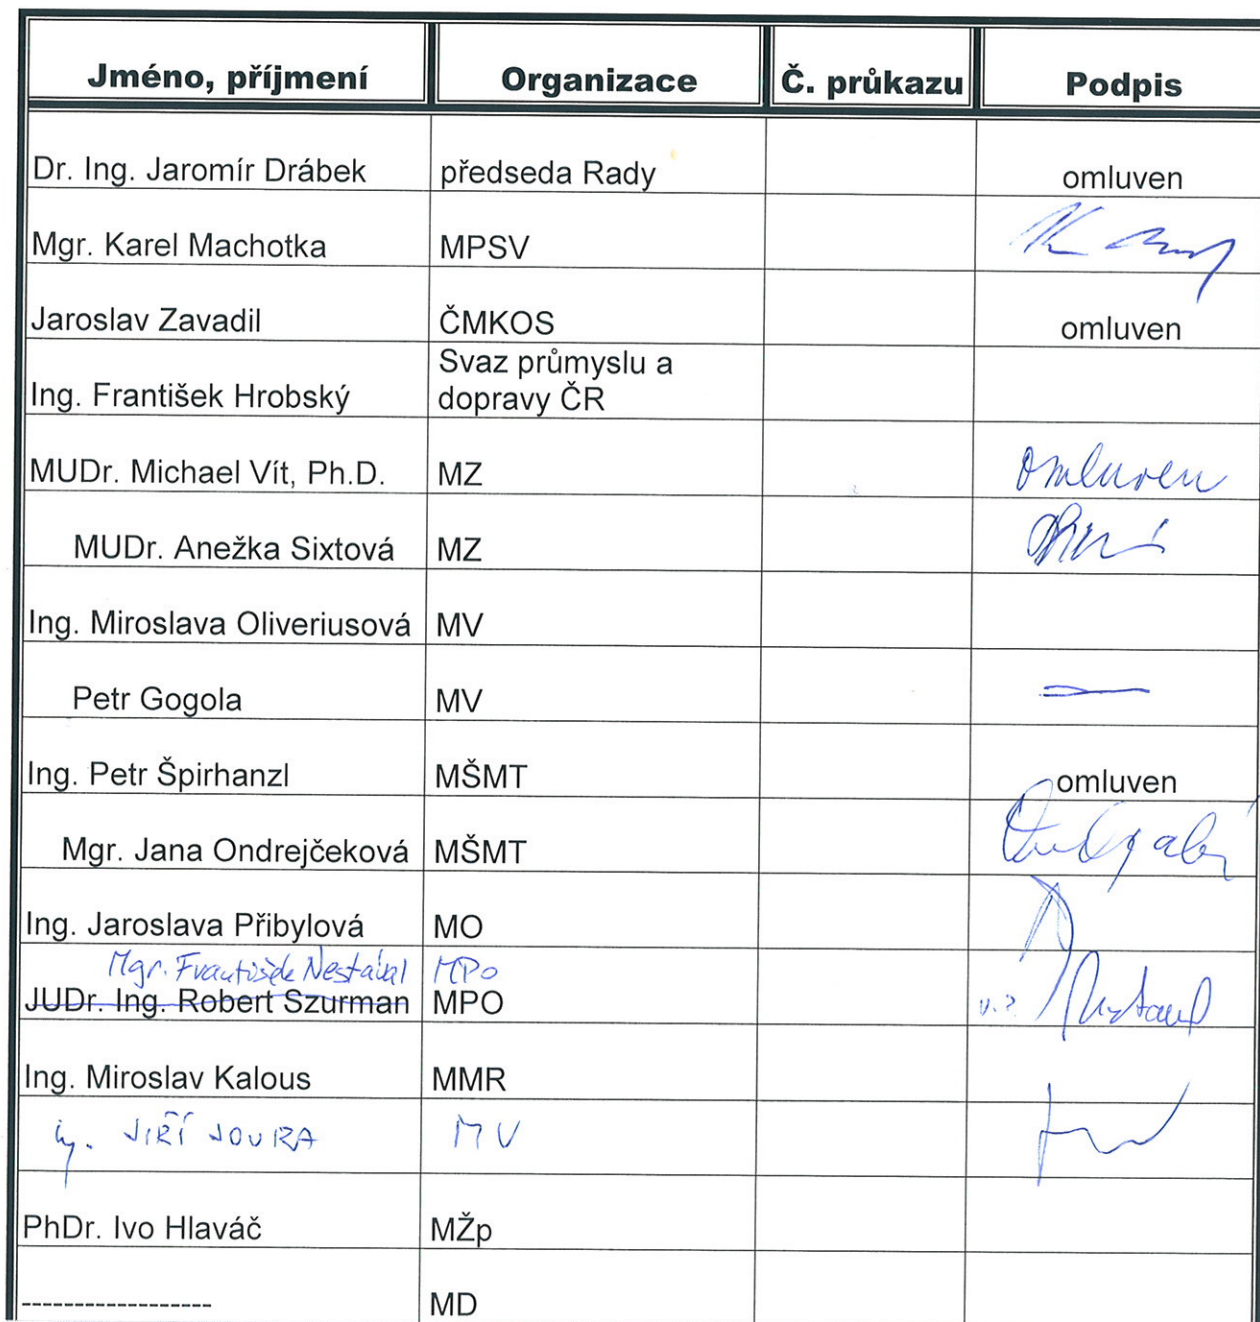 Jméno, příjmení Organizace Č. průkazu Podpis
Dr. Ing. Jaromír Drábek předseda Rady omluven
Mgr. Karel Machotka MPSV
Jaroslav Zavadil ČMKOS omluven
Svaz průmyslu a
Ing. František Hrobský dopravy ČR
MUDr. Michael Vít, Ph.D. MZ omluven
MUDr. Anežka Sixtová MZ
Ing. Miroslava Oliveriusová MV
Petr Gogola MV
Ing. Petr Špirhanzl MŠMT omluven
Mgr. Jana Ondrejčeková MŠMT
Ing. Jaroslava Přibylová MO
Mgr. František Nestával MPO
JUDr. Ing. Robert Szurman MPO v.z.
Ing. Miroslav Kalous MMR
Ing. JIŘÍ JOURA MV
PhDr. Ivo Hlaváč MŽp
------------------ MD